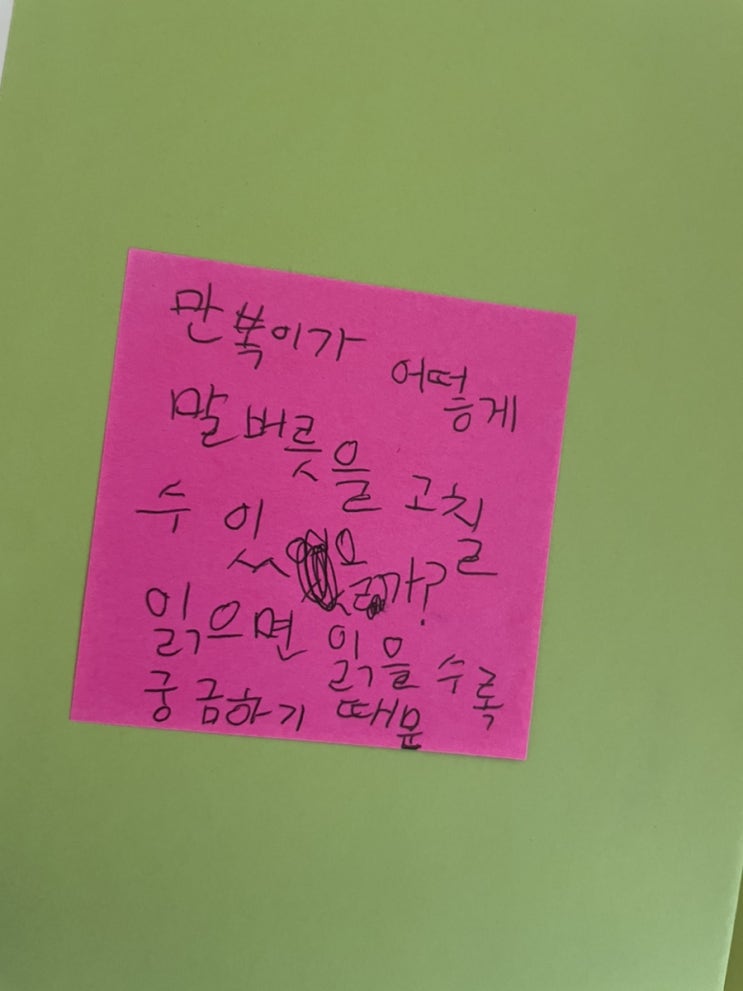 만복이가 어떻게
말버릇을 고칠
수 있을까?
읽으면 읽을 수록
궁금하기 때문